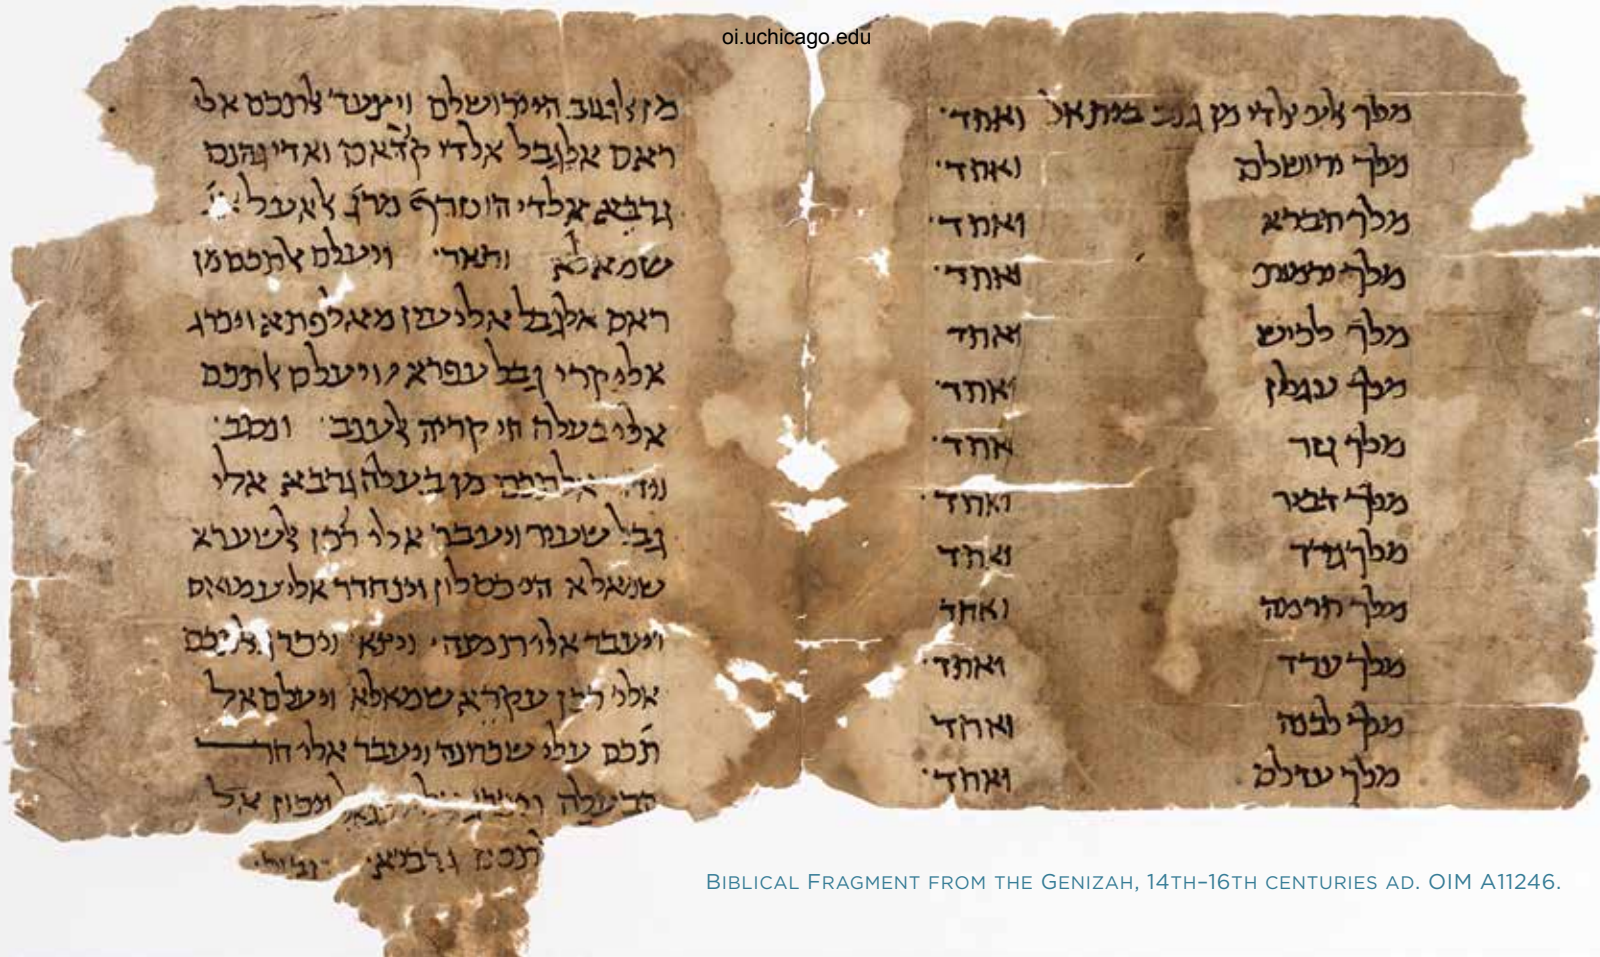 oi.uchicago.edu
מלך אלעי אלדי מן גנב בית אל ואחד·
מלך ירושלם ואחד·
מלך חברא ואחד·
מלך ירמות ואחד·
מלך לכיש ואחד
מלך עגלון ואחד·
מלך גזר ואחד·
מלך דביר ואחד·
מלך גדר ואחד
מלך חרמה ואחד
מלך ערד ואחד·
מלך לבנה ואחד
מלך עדלם ואחד·
מן אלגנוב הי ירושלם ויצעד אלתכם אלי
ראס אלגבל אלדי קדאם ואדי הנם
גרבא אלדי הו טרף מרג
שמאלא ותאר· ויעלם אלתכם מן
ראס אלגבל אלי עין מא לפתא ויכרג
אלי קרי גבל עפרא ויעלם אלתכם
אלי בעלה הי קריה אלענב·
אלתכם מן בעלה גרבא אלי
גבל שעיר ויעבר אלי רכן אלשערא
שמאלא הי כסלון וינחדר אלי
ויעבר אלי תמנה·
אלי רכן עקרא שמאלא ויעלם אל
תכם עלי שכרונה ויעבר אלי הר
הבעלה ויכון אל
תכם גרביא·
BIBLICAL FRAGMENT FROM THE GENIZAH, 14TH–16TH CENTURIES AD. OIM A11246.